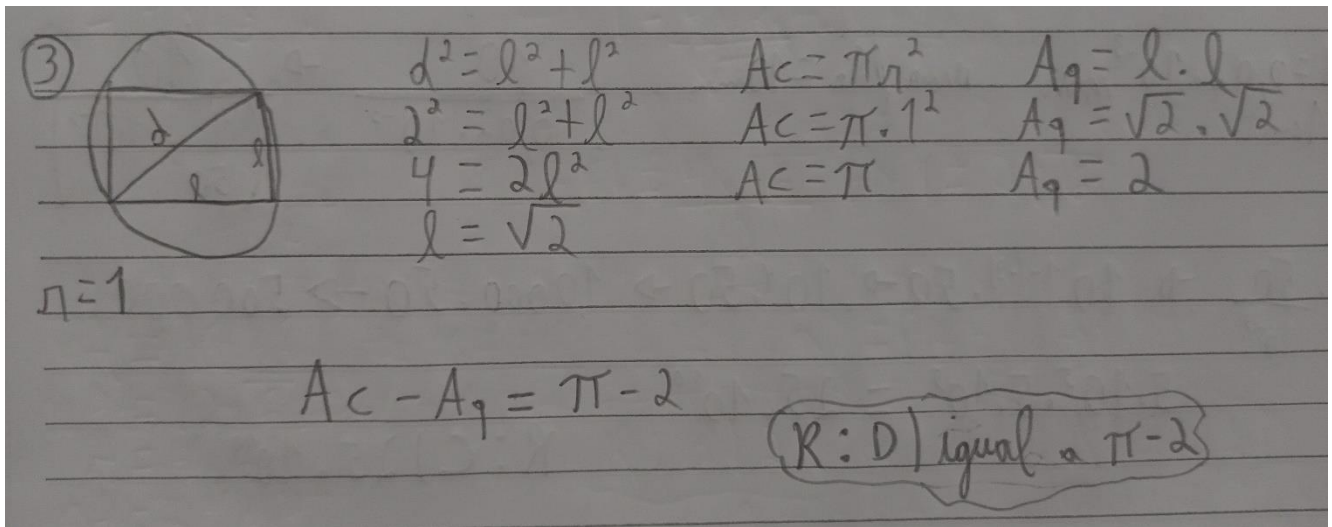 3
d
l
l
r=1
d² = l² + l²
2² = l² + l²
4 = 2l²
l = √2
Ac = πr²
Ac = π.1²
Ac = π
Aq = l.l
Aq = √2.√2
Aq = 2
Ac - Aq = π - 2
R: D) igual a π-2